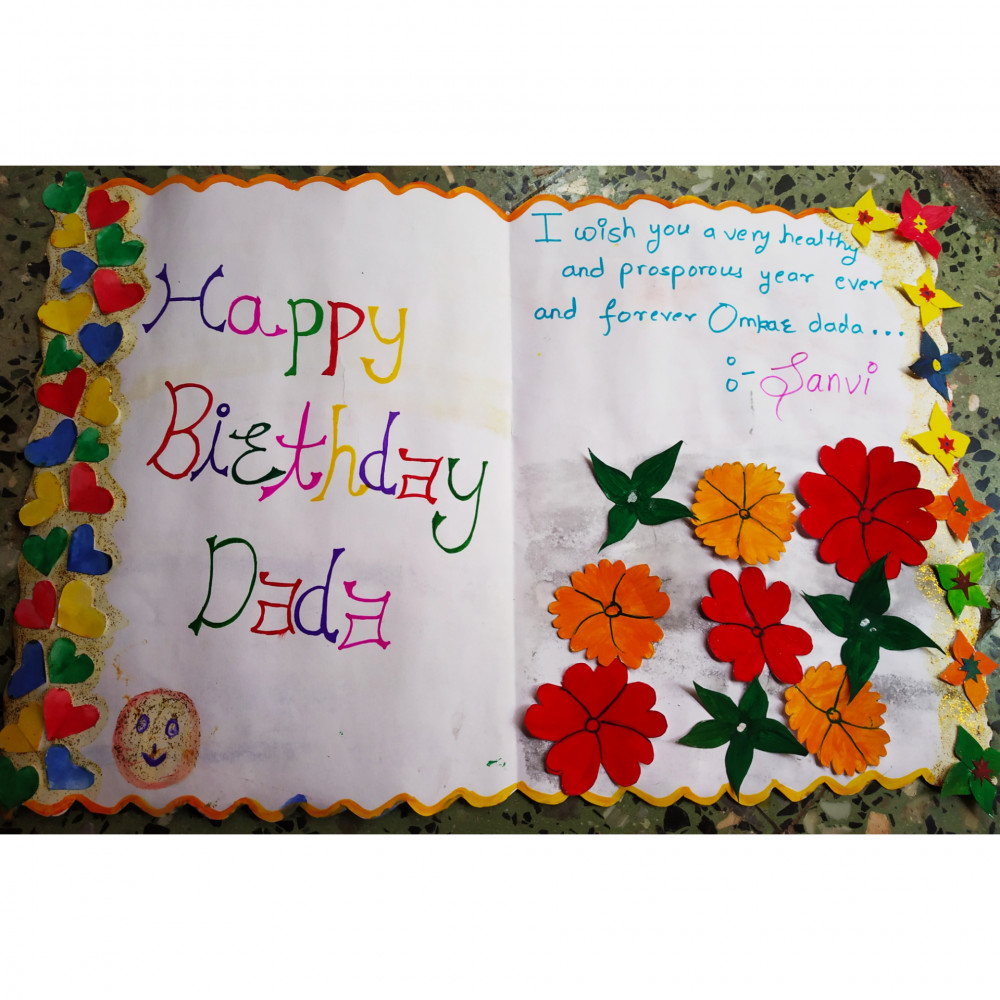 Happy
Birthday
Dada
I wish you a very healthy
and prosporous year ever
and forever Omkar dada...
:- Sanvi